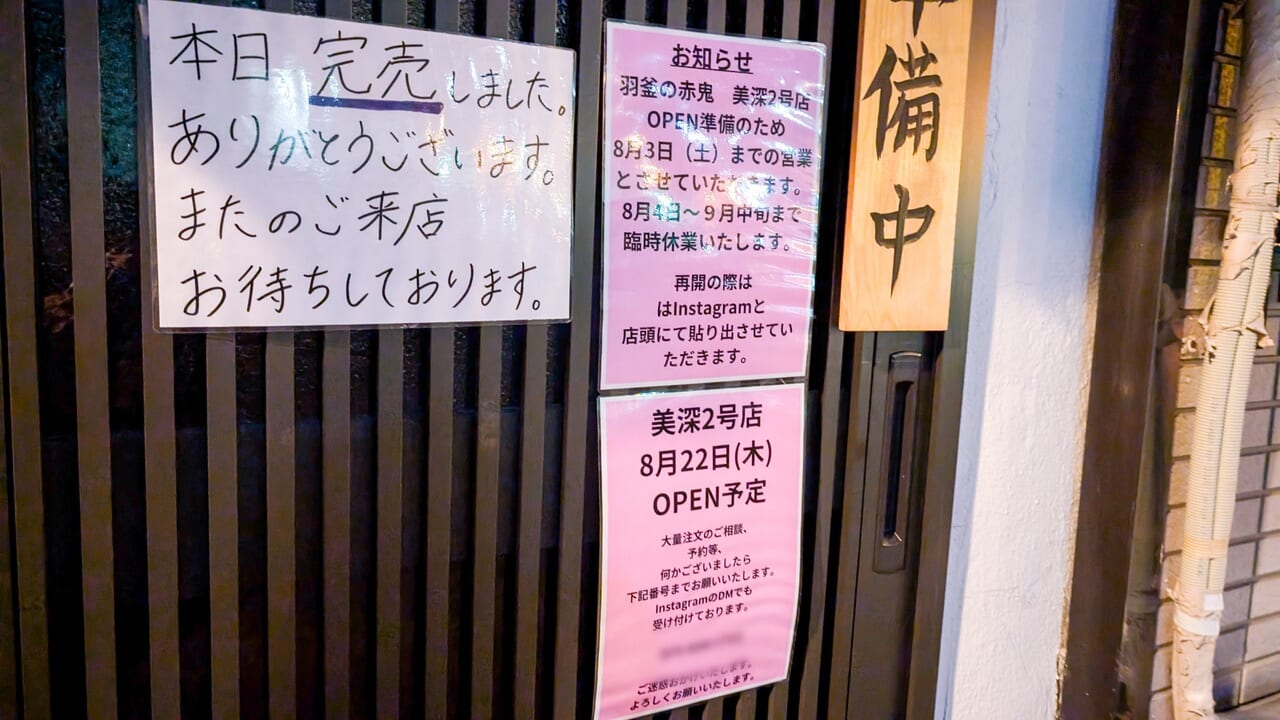 本日 完売しました。
ありがとうございます。
またのご来店
お待ちしております。
お知らせ
羽釜の赤鬼　美深2号店
OPEN準備のため
8月3日（土）までの営業
とさせていただきます。
8月4日～9月中旬まで
臨時休業いたします。
再開の際は
はInstagramと
店頭にて貼り出させてい
ただきます。
美深2号店
8月22日(木)
OPEN予定
大量注文のご相談、
予約等、
何かございましたら
下記番号までお願いいたします。
InstagramのDMでも
受け付けております。
ご迷惑おかけいたします。
よろしくお願いいたします。
準備中